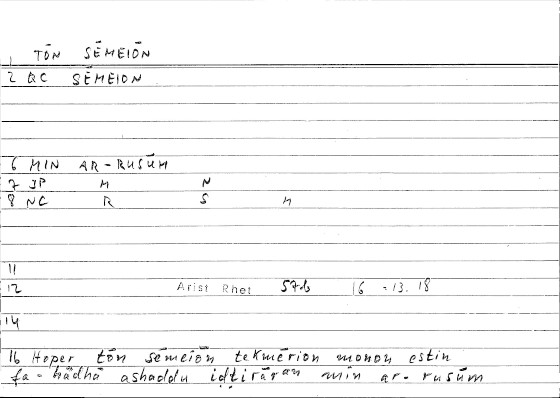 1 TŌN SĒMEIŌN
2 QC SĒMEION
6 MIN AR-RUSŪM
7 JP M N
8 NC R S M
11
12 Arist Rhet 57b 16 -13.18
14
16 Hoper tōn sēmeíōn tekmērion monon estin
fa-hādhā ashaddu iḍṭirāran min ar-rusūm